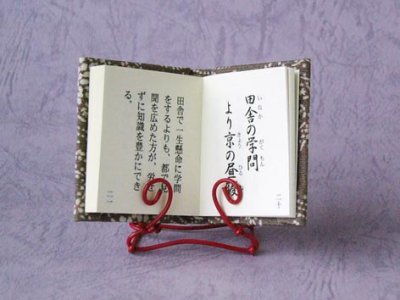 田舎の学問
より京の昼寝
二十
田舎で一生懸命に学問
をするよりも、都で
聞を広めた方が、労
ずに知識を豊かにでき
る。
二一